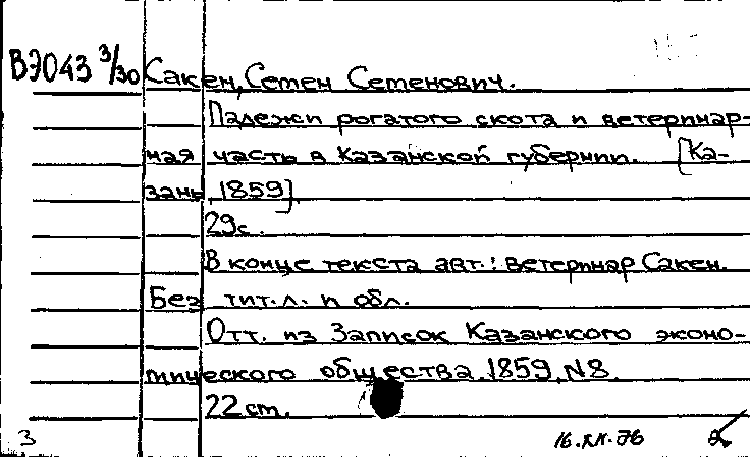 ВЭ043 3/30 Сакен, Семен Семенович.
Падежи рогатого скота и ветеринар-
ная часть в Казанской губернии. [Ка-
зань, 1859].
29с.
В конце текста авт.: ветеринар Сакен.
Без тит. л. и обл.
Отт. из Записок Казанского эконо-
мического общества, 1859, N8.
22 см.
3 16.XII.76